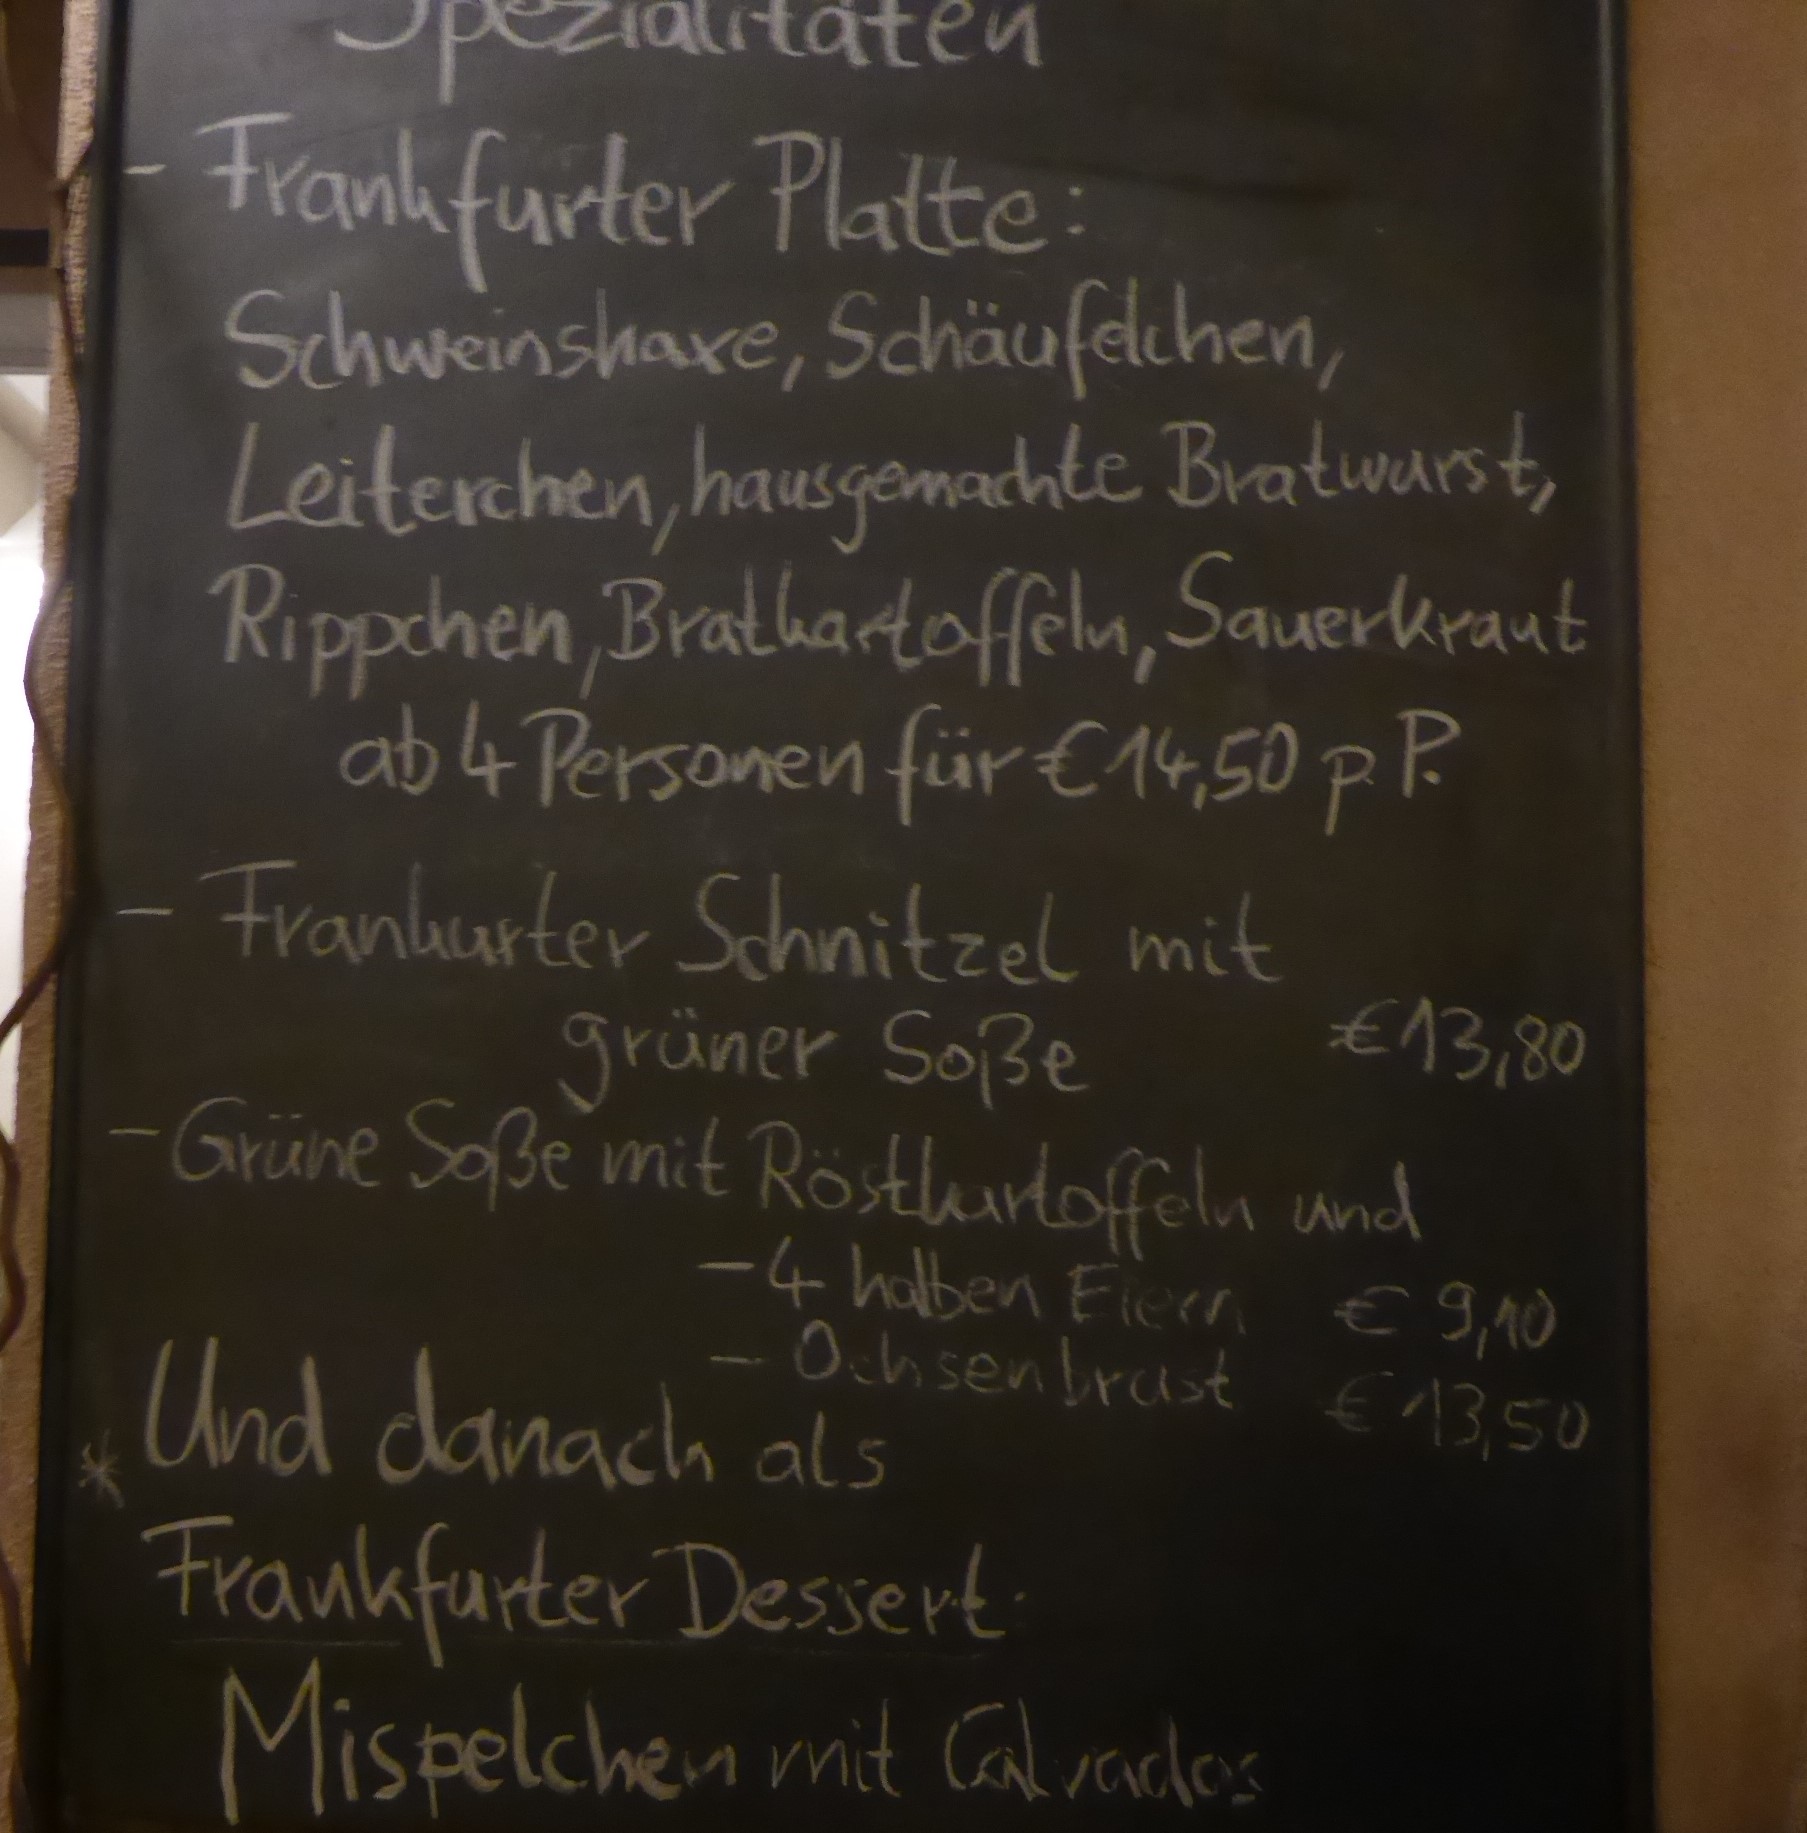 Spezialitäten
- Frankfurter Platte:
Schweinshaxe, Schäufelchen,
Leiterchen, hausgemachte Bratwurst,
Rippchen, Bratkartoffeln, Sauerkraut
ab 4 Personen für € 14,50 p. P.
- Frankurter Schnitzel mit
grüner Soße € 13,80
- Grüne Soße mit Röstkartoffeln und
- 4 halben Eiern € 9,10
- Ochsenbrust € 13,50
* Und danach als
Frankfurter Dessert:
Mispelchen mit Calvados